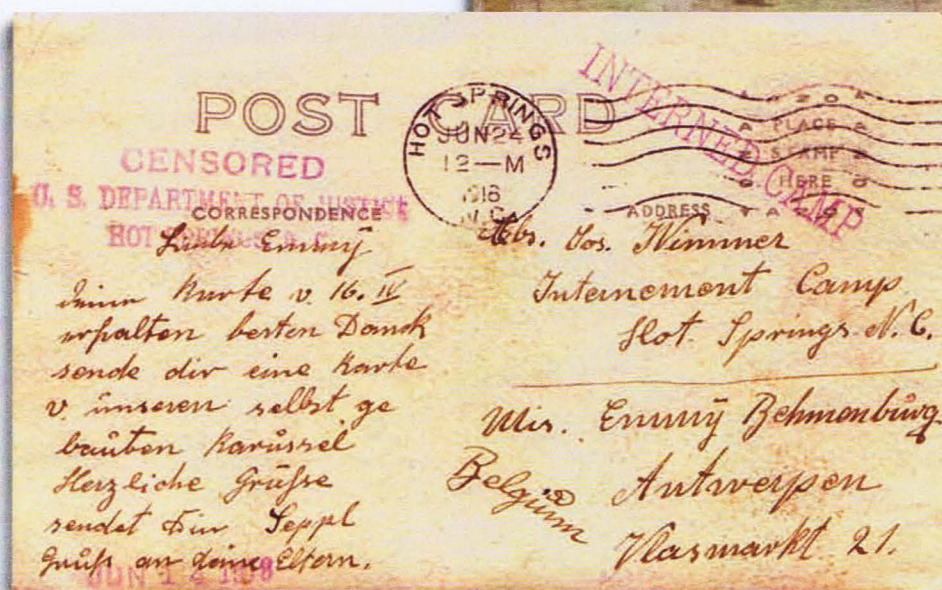 POST CARD
HOT SPRINGS
JUN 24
12—M
1918
N.C.
INTERNED CAMP
PLACE
STAMP
HERE
CENSORED
U. S. DEPARTMENT OF JUSTICE
HOT SPRINGS N. C.
CORRESPONDENCE
ADDRESS
Liebe Emmÿ
deine Karte v. 16. IV
erhalten besten Danck
sende dir eine Karte
v. ünseren selbst ge
bauten Karüssel
Herzliche Grüße
sendet Dir Seppl
Gruß an deine Eltern.
JUN 12 1918
Abs. Jos. Wimmer
Internement Camp
Hot. Springs N.C.
Mis. Emmÿ Behmenburg
Antwerpen
Belgium
Vlasmarkt 21.